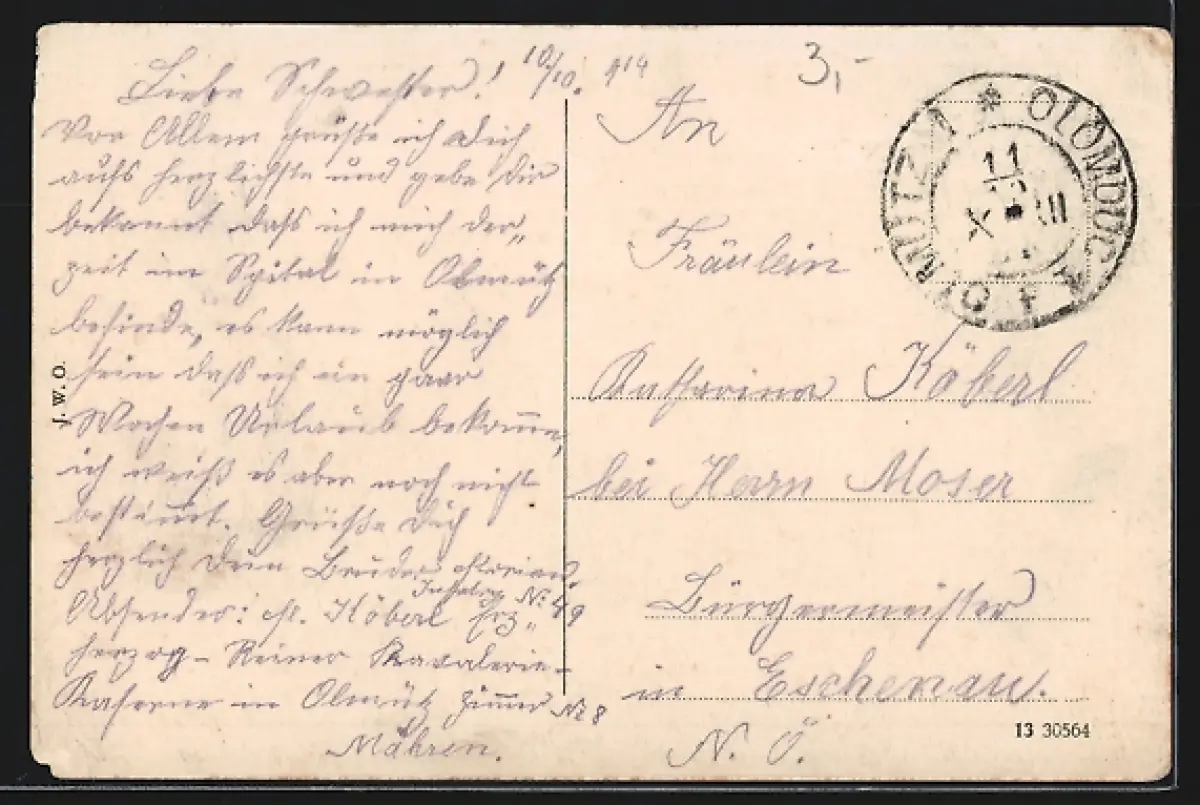 Liebe Schwester! 10/10. 914
Vor Allem grüßte ich Dich
aufs herzlichste und gebe Dir
bekannt daß ich mich der„
zeit im Spital in Olmütz
befinde, es kann möglich
sein daß ich ein paar
Wochen Urlaub bekomme,
ich weiß es aber noch nicht
bestimmt. Grüße Dich
herzlich Dein Bruder Florian.
Absender: Fl. Köberl Inftrg. Nr. 49 Erz„
herzog-Reiner Kavalerie-
Kaserne in Olmütz Zimmer Nr 8
Mähren.
J. W. O.
3,-
OLMÜTZ 1 * OLOMOUC 1
11
X
An
Fräulein
Katharina Köberl
bei Herrn Moser
Bürgermeister
in Eschenau.
N. Ö.
13 30564